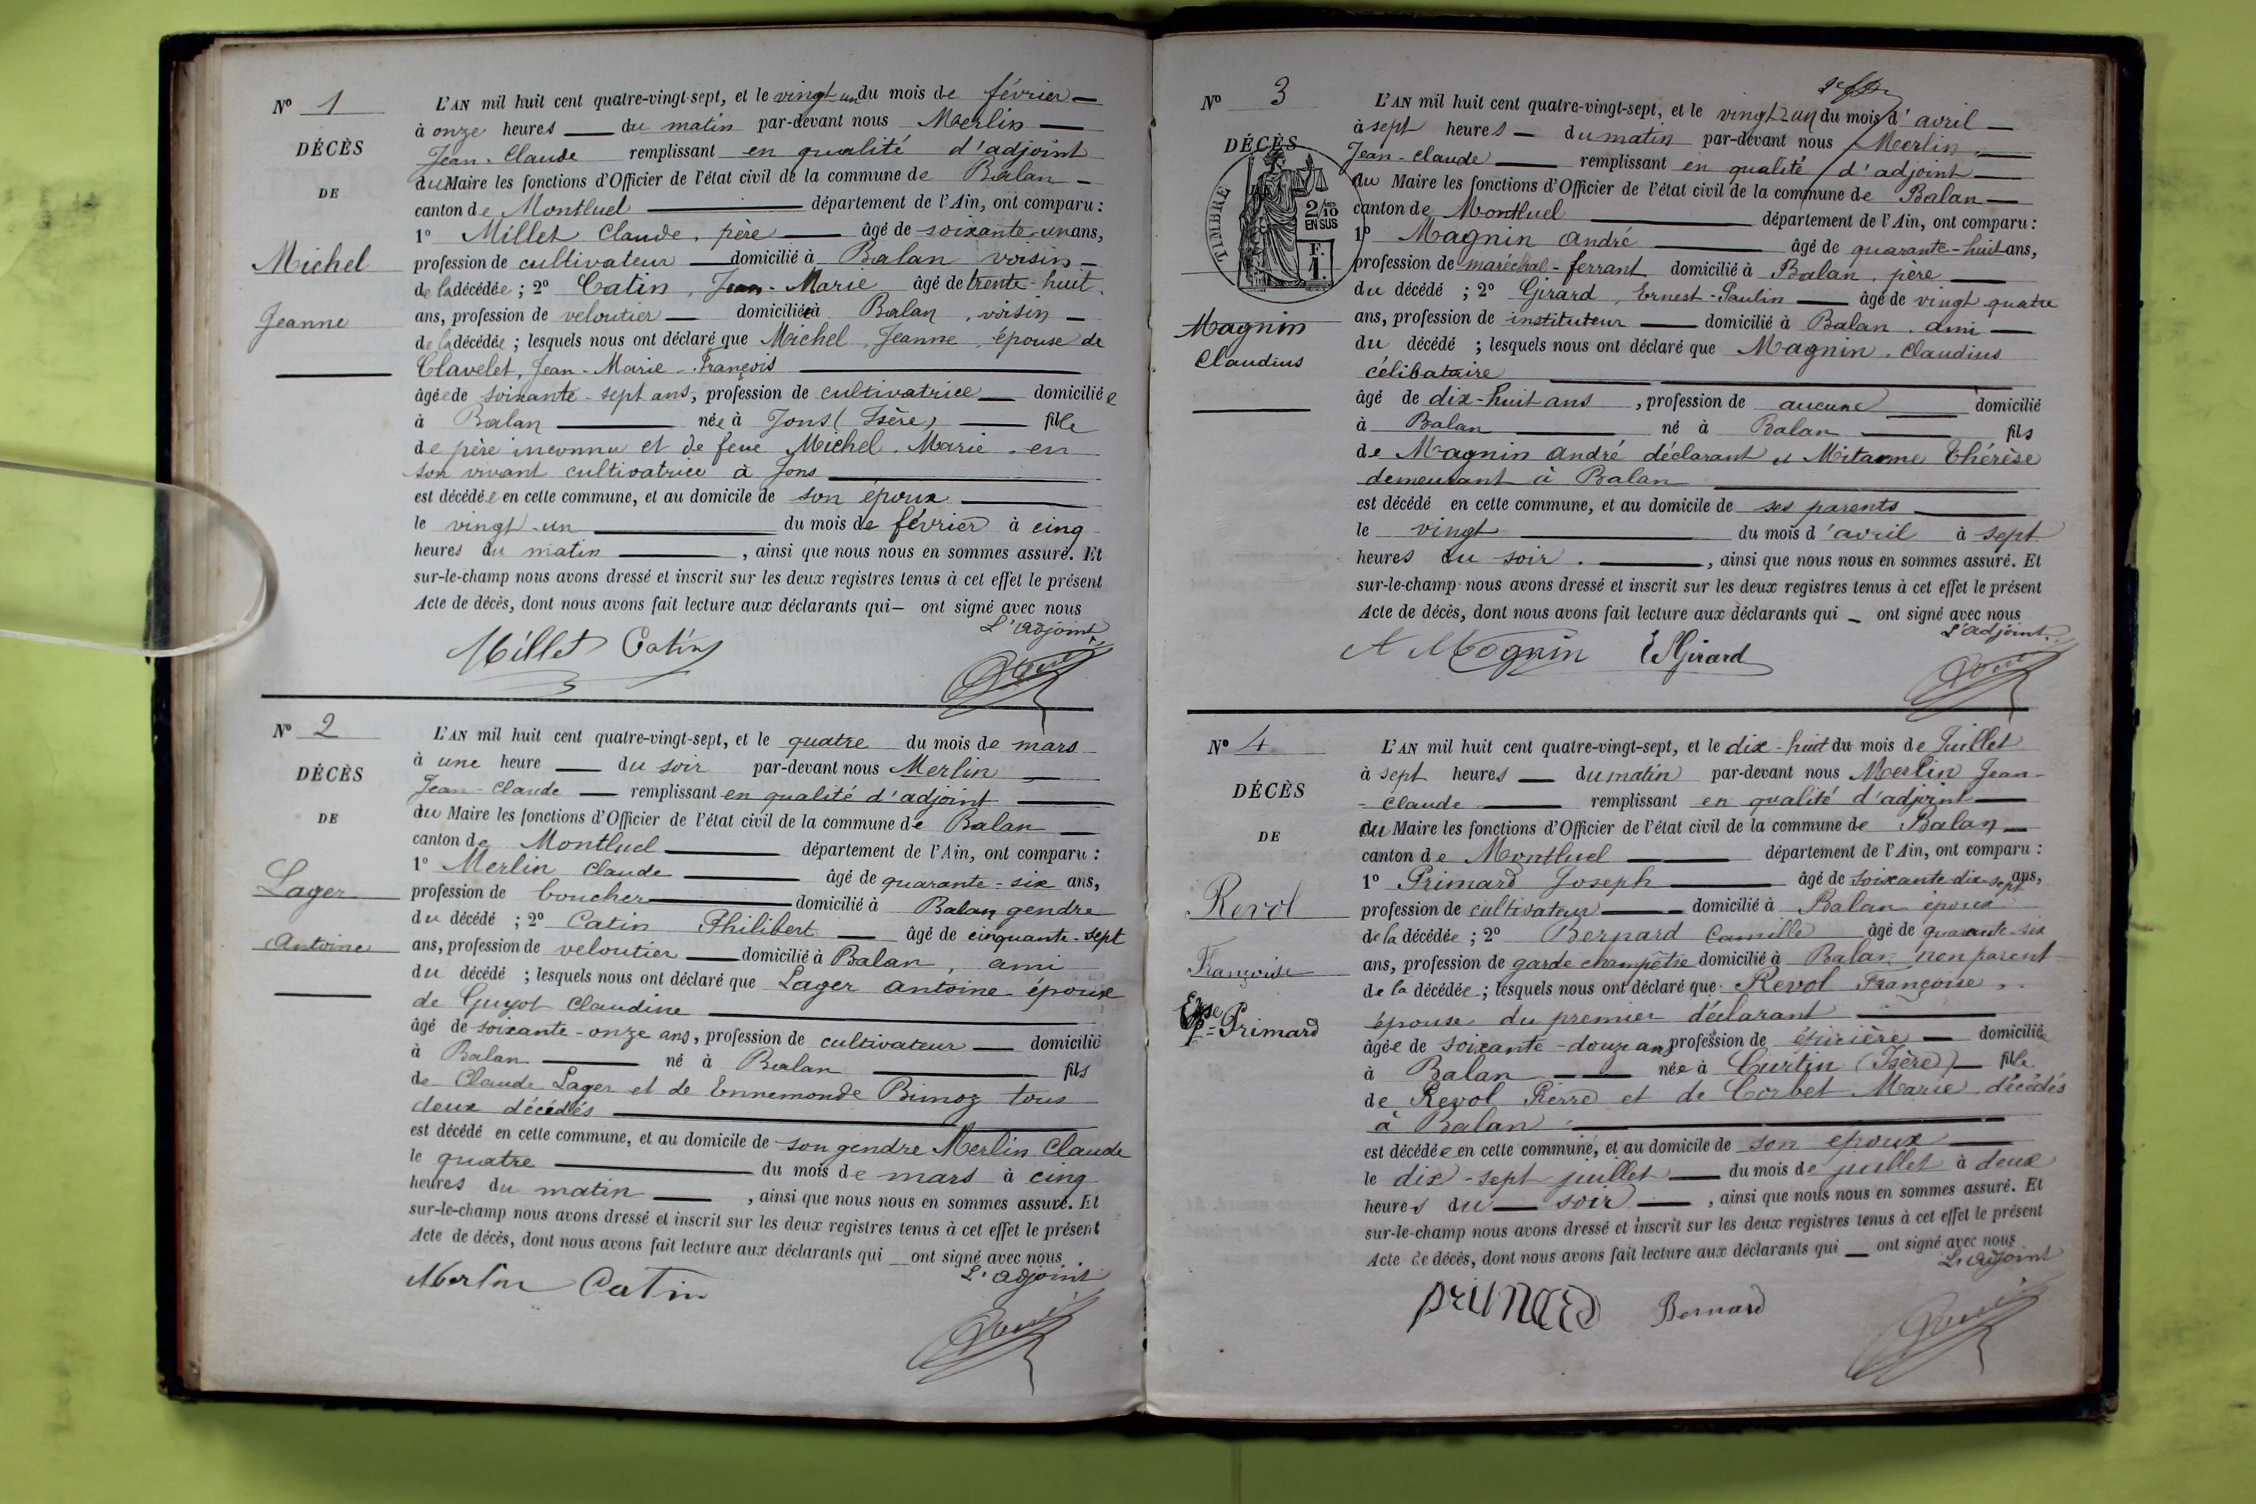 Nº 1
DÉCÈS
DE
Michel
Jeanne
L'AN mil huit cent quatre-vingt-sept, et le vingt-un du mois de février
à onze heures du matin par-devant nous Merlin
Jean-Claude remplissant en qualité d'adjoint
du Maire les fonctions d'Officier de l'état civil de la commune de Balan
canton de Montluel département de l'Ain, ont comparu :
1º Millet Claude, père âgé de soixante-un ans,
profession de cultivateur domicilié à Balan voisin
de la décédée ; 2º Catin, Jean-Marie âgé de trente-huit
ans, profession de veloutier domicilié à Balan, voisin
de la décédée ; lesquels nous ont déclaré que Michel, Jeanne, épouse de
Clavelet, Jean-Marie-François
âgée de soixante-sept ans, profession de cultivatrice domiciliée
à Balan née à Jons (Isère) fille
de père inconnu et de feue Michel, Marie, en
son vivant cultivatrice à Jons
est décédée en cette commune, et au domicile de son époux
le vingt-un du mois de février à cinq
heures du matin, ainsi que nous nous en sommes assuré. Et
sur-le-champ nous avons dressé et inscrit sur les deux registres tenus à cet effet le présent
Acte de décès, dont nous avons fait lecture aux déclarants qui ont signé avec nous
L'adjoint
Millet Catin
Nº 2
DÉCÈS
DE
Lager
Antoine
L'AN mil huit cent quatre-vingt-sept, et le quatre du mois de mars
à une heure du soir par-devant nous Merlin
Jean-Claude remplissant en qualité d'adjoint
du Maire les fonctions d'Officier de l'état civil de la commune de Balan
canton de Montluel département de l'Ain, ont comparu :
1º Merlin Claude âgé de quarante-six ans,
profession de boucher domicilié à Balan gendre
du décédé ; 2º Catin Philibert âgé de cinquante-sept
ans, profession de veloutier domicilié à Balan, ami
du décédé ; lesquels nous ont déclaré que Lager Antoine époux
de Guyot Claudine
âgé de soixante-onze ans, profession de cultivateur domicilié
à Balan né à Balan fils
de Claude Lager et de Ennemonde Bimoz tous
deux décédés
est décédé en cette commune, et au domicile de son gendre Merlin Claude
le quatre du mois de mars à cinq
heures du matin, ainsi que nous nous en sommes assuré. Et
sur-le-champ nous avons dressé et inscrit sur les deux registres tenus à cet effet le présent
Acte de décès, dont nous avons fait lecture aux déclarants qui ont signé avec nous
L'adjoint
Merlin Catin
Nº 3
DÉCÈS
TIMBRE
2/10
EN SUS
F.
1.
Magnin
Claudius
L'AN mil huit cent quatre-vingt-sept, et le vingt-un du mois d'avril
à sept heures du matin par-devant nous Merlin
Jean-Claude remplissant en qualité d'adjoint
du Maire les fonctions d'Officier de l'état civil de la commune de Balan
canton de Montluel département de l'Ain, ont comparu :
1º Magnin André âgé de quarante-huit ans,
profession de maréchal-ferrant domicilié à Balan, père
du décédé ; 2º Girard, Ernest-Paulin âgé de vingt quatre
ans, profession de instituteur domicilié à Balan, ami
du décédé ; lesquels nous ont déclaré que Magnin, Claudius
célibataire
âgé de dix-huit ans, profession de aucune domicilié
à Balan né à Balan fils
de Magnin André déclarant et Mitanne Thérèse
demeurant à Balan
est décédé en cette commune, et au domicile de ses parents
le vingt du mois d'avril à sept
heures du soir, ainsi que nous nous en sommes assuré. Et
sur-le-champ nous avons dressé et inscrit sur les deux registres tenus à cet effet le présent
Acte de décès, dont nous avons fait lecture aux déclarants qui ont signé avec nous
L'adjoint
A Magnin EPGirard
Nº 4
DÉCÈS
DE
Revol
Françoise
Epse Primard
L'AN mil huit cent quatre-vingt-sept, et le dix-huit du mois de Juillet
à sept heures du matin par-devant nous Merlin Jean-
-Claude remplissant en qualité d'adjoint
du Maire les fonctions d'Officier de l'état civil de la commune de Balan
canton de Montluel département de l'Ain, ont comparu :
1º Primard Joseph âgé de soixante dix-sept ans,
profession de cultivateur domicilié à Balan époux
de la décédée ; 2º Bernard Camille âgé de quarante-six
ans, profession de garde champêtre domicilié à Balan non parent
de la décédée ; lesquels nous ont déclaré que Revol Françoise,
épouse du premier déclarant
âgée de soixante-douze ans profession de épicière domiciliée
à Balan née à Curtin (Isère) fille
de Revol Pierre et de Corbet Marie, décédés
à Balan
est décédée en cette commune, et au domicile de son époux
le dix-sept juillet du mois de juillet à deux
heures du soir, ainsi que nous nous en sommes assuré. Et
sur-le-champ nous avons dressé et inscrit sur les deux registres tenus à cet effet le présent
Acte de décès, dont nous avons fait lecture aux déclarants qui ont signé avec nous
L'adjoint
Primard Bernard